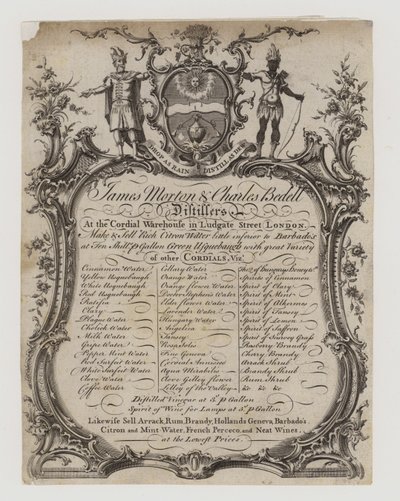 DROP AS RAIN DISTILL AS DEW
James Morton & Charles Bedell
Distillers
At the Cordial Warehouse in Ludgate Street LONDON.
Make & Sell Rich Citron Water little inferior to Barbados
at Ten Shill.s p Gallon Green Usquebaugh with great Variety
of other CORDIALS, Viz.t
Cinnamon Water
Yellow Usquebaugh
White Usquebaugh
Red Usquebaugh
Ratefia
Clary
Plague Water
Cholick Water
Milk Water
Grape Water
Pepper Mint Water
Red Surfeit Water
White Surfeit Water
Clove Water
Coffee Water
Cellary Water
Orange Water
Orange flower Water
Doctor Stephens Water
Elder flower Water
Lavender Water
Hungary Water
Angelica
Tansey
Rosasolis
Fine Geneva
Cordial Anniseed
Aqua Mirabilis
Clove Gilley flower
Lilley of the Valley
Spirits of Cinnamon
Spirit of Clary
Spirit of Mint
Spirit of Tansey
Spirit of Lemon
Spirit of Saffron
Spirit of Scurvy Grass
Rasberry Brandy
Cherry Brandy
Arrack Shrub
Brandy Shrub
Rum Shrub
&c &c &c
Distilled Vinegar at p Gallon
Spirit of Wine for Lamps at p Gallon
Likewise Sell Arrack, Rum, Brandy, Hollands Geneva, Barbado's
Citron and Mint Water, French Persico, and Neat Wines,
at the Lowest Prices.